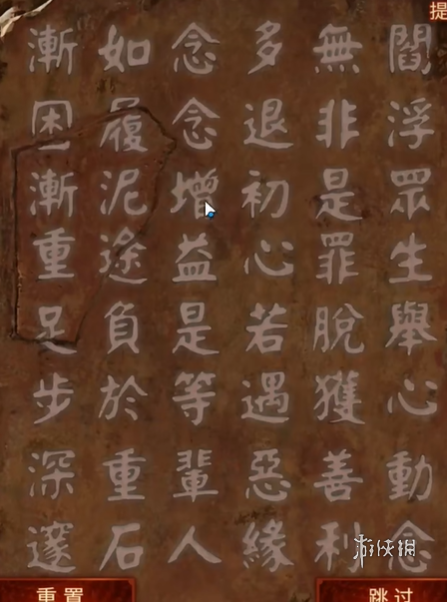 閻浮眾生舉心動念
無非是罪脫獲善利
多退初心若遇惡緣
念念增益是等輩人
如履泥途負於重石
漸困漸重足步深邃
提
重置
跳过
游侠网